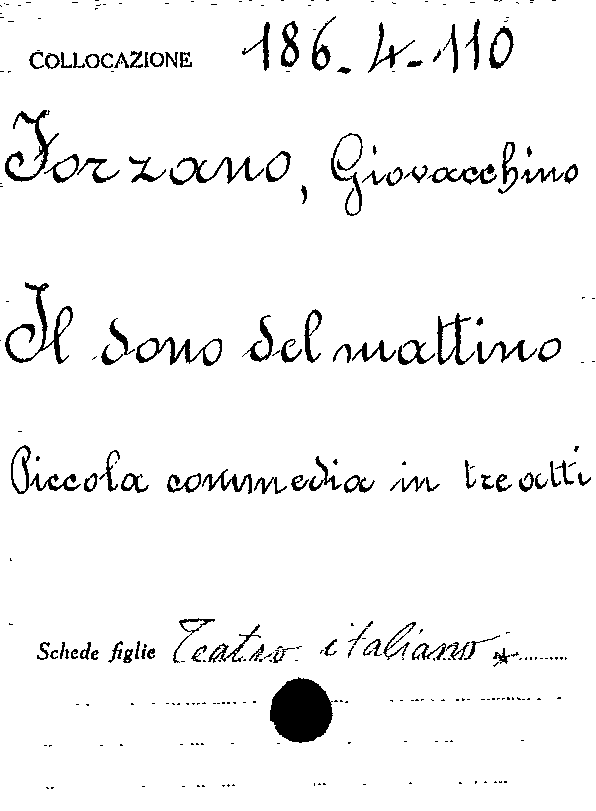 COLLOCAZIONE 186-4-110
Forzano, Giovacchino
Il dono del mattino
Piccola commedia in tre atti
Schede figlie Teatro italiano *